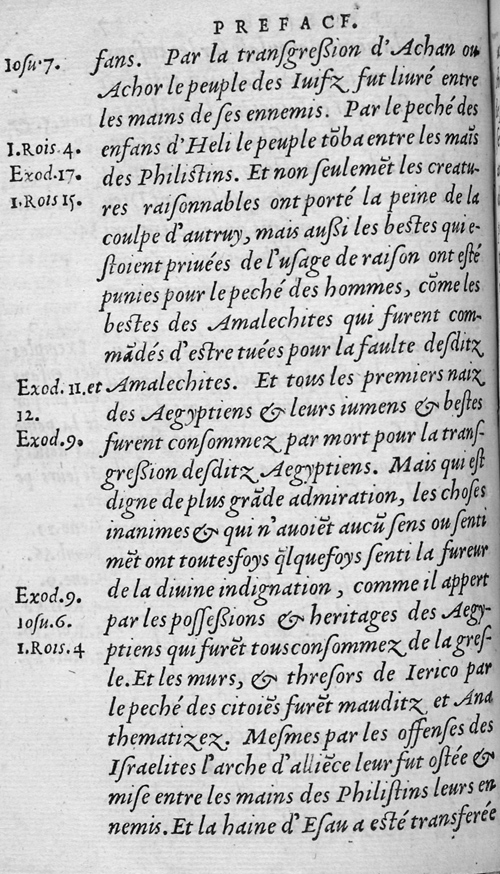 PREFACE.
Iosu.7. fans. Par la transgreßion d'Achan ou
Achor le peuple des Iuifz fut liuré entre
les mains de ses ennemis. Par le peché des
1.Rois.4. enfans d'Heli le peuple tõba entre les maĩs
Exod.17. des Philistins. Et non seulemẽt les creatu-
1.Rois 15. res raisonnables ont porté la peine de la
coulpe d'autruy, mais außi les bestes qui e-
stoient priuées de l'usage de raison ont esté
punies pour le peché des hommes, cõme les
bestes des Amalechites qui furent com-
mãdés d'estre tuées pour la faulte desditz
Exod. 11. et Amalechites. Et tous les premiers naiz
12. des Aegyptiens & leurs iumens & bestes
Exod.9. furent consommez par mort pour la trans-
greßion desditz Aegyptiens. Mais qui est
digne de plus grãde admiration, les choses
inanimes & qui n'auoiẽt aucũ sens ou senti
mẽt ont toutesfoys q̃lquefoys senti la fureur
Exod.9. de la diuine indignation, comme il appert
Iosu.6. par les posseßions & heritages des Aegy-
1.Rois.4 ptiens qui furẽt tous consommez de la gres-
le. Et les murs, & thresors de Ierico par
le peché des citoiẽs furẽt mauditz et Ana
thematizez. Mesmes par les offenses des
Israelites l'arche d'alliẽce leur fut ostée &
mise entre les mains des Philistins leurs en
nemis. Et la haine d'Esau a esté transferée